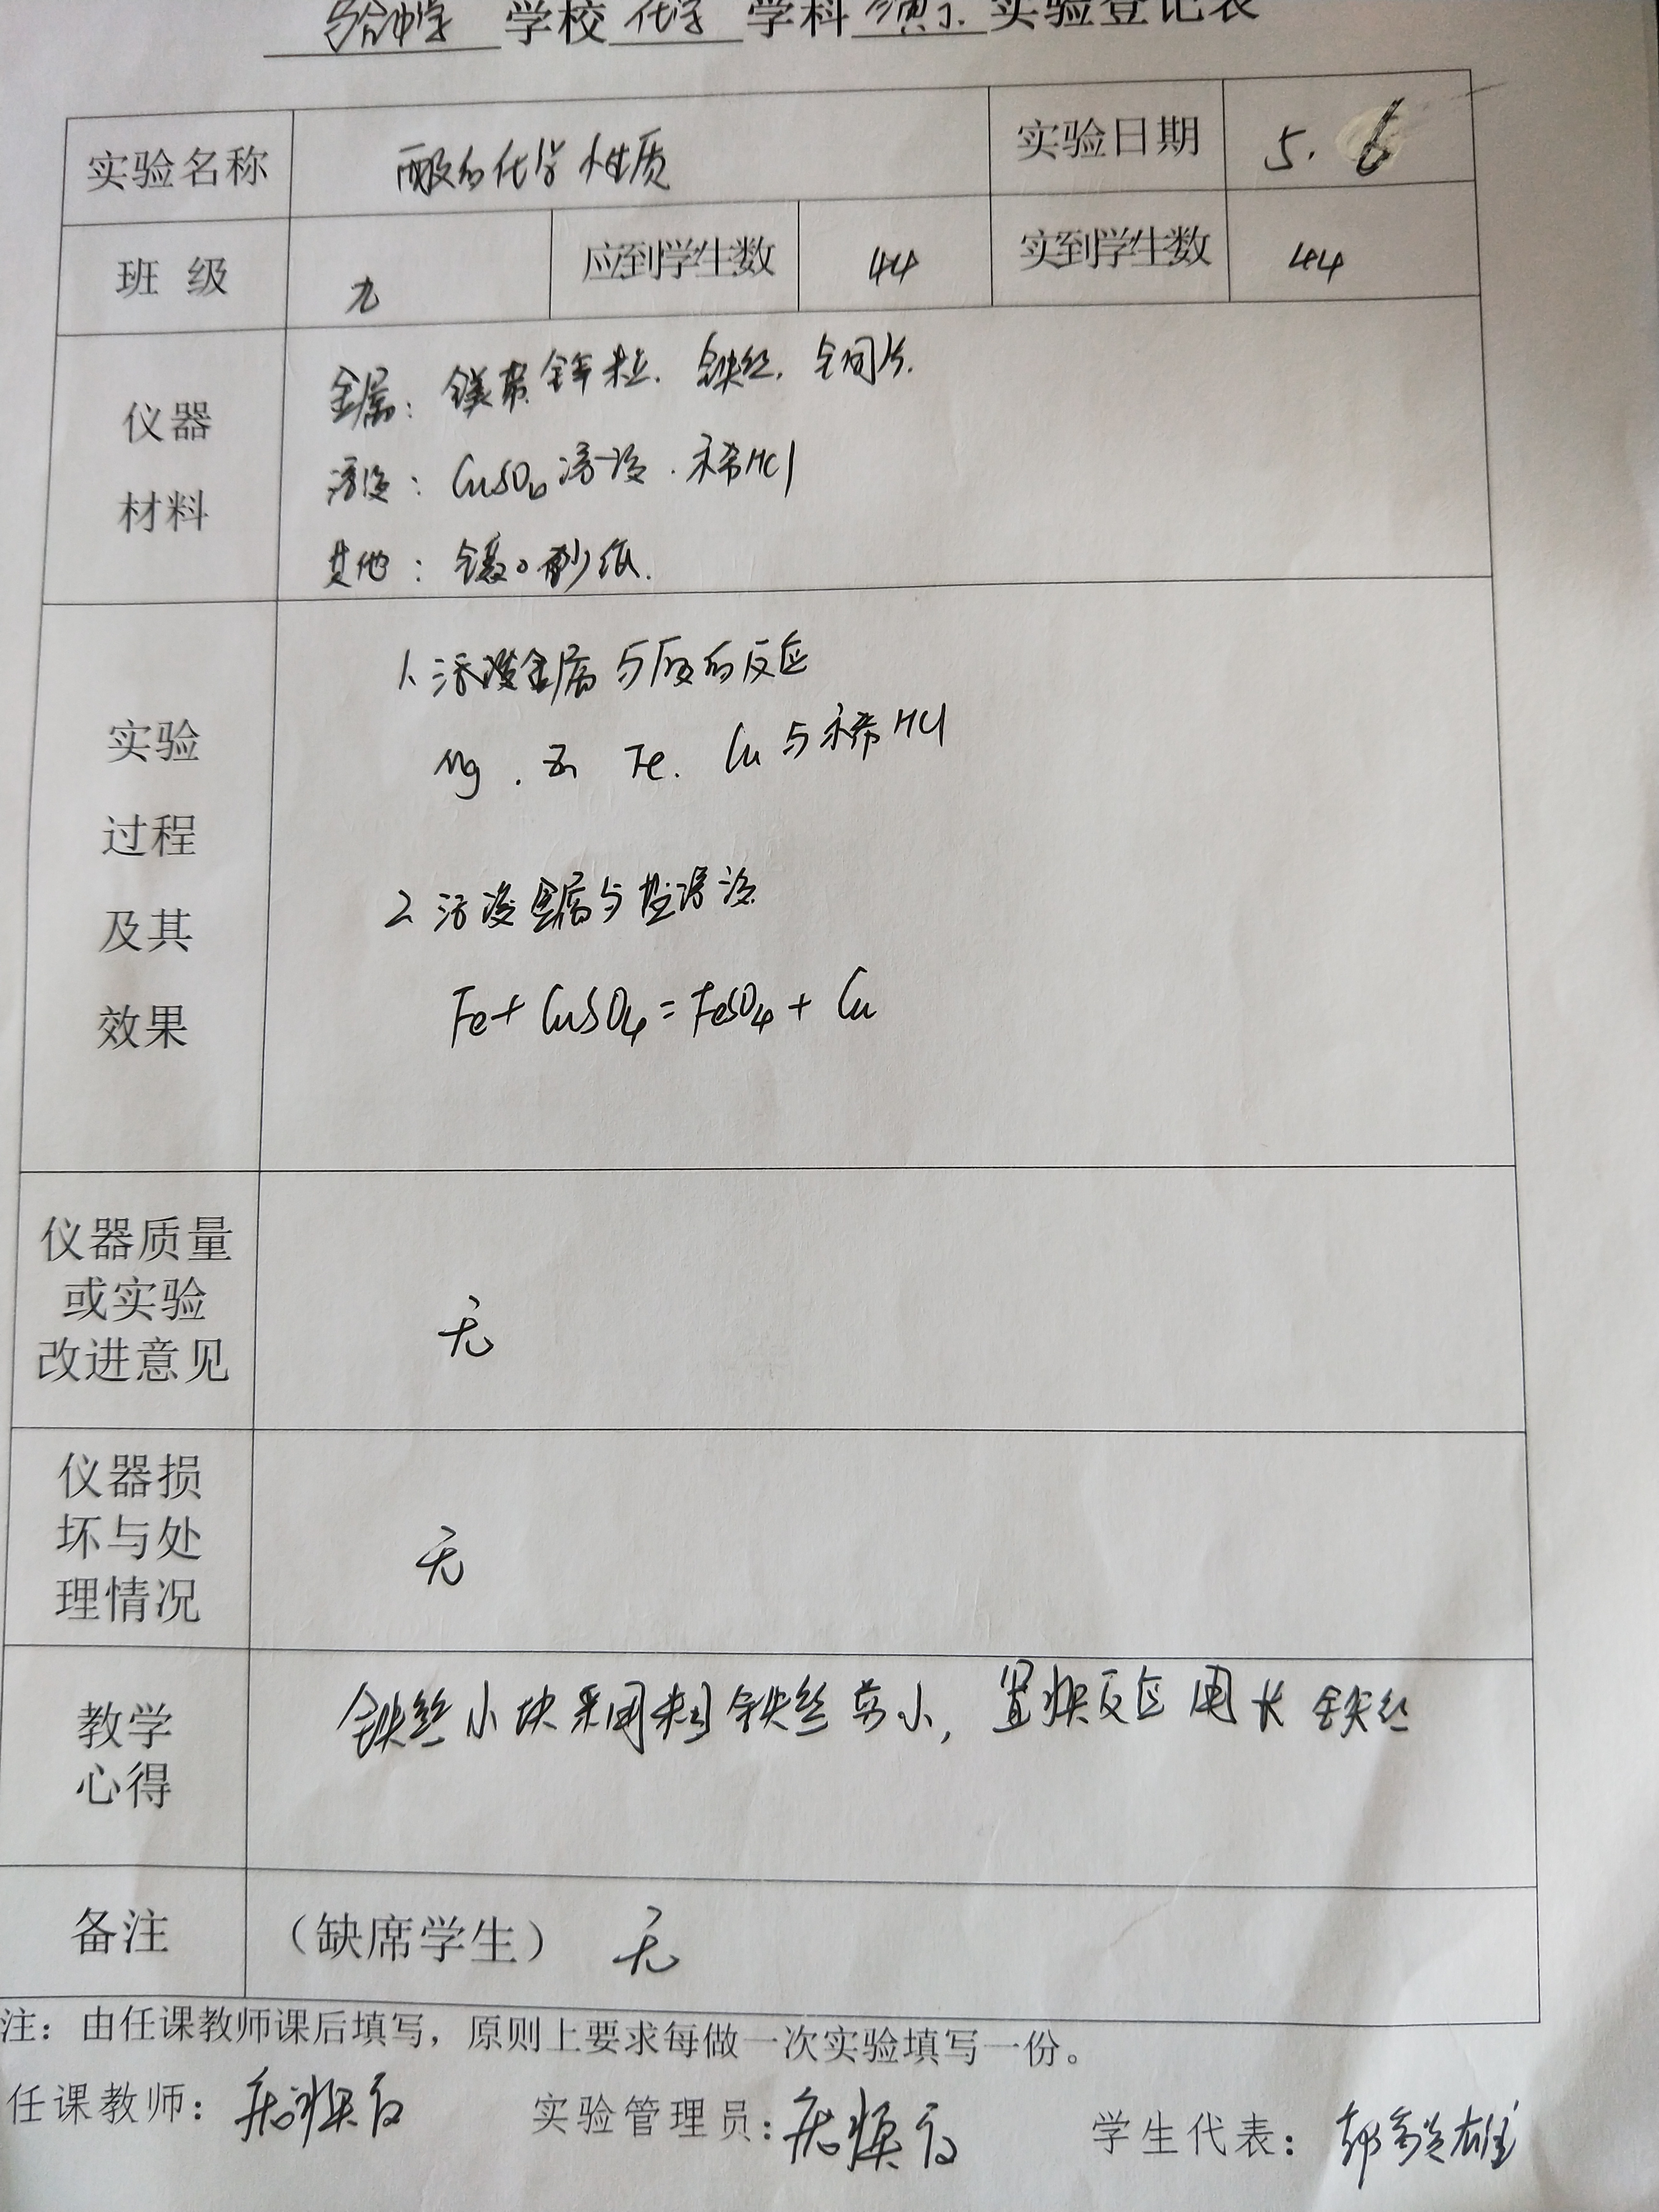 学校 化学 学科 演示 实验登记表
实验名称 酸的化学性质 实验日期 5.6
班 级 九 应到学生数 44 实到学生数 44
仪器
材料
金属：镁带 锌粒. 铁丝. 铜片.
溶液：CuSO4溶液.稀HCl
其他：砂纸.
实验
过程
及其
效果
1. 活泼金属与酸的反应
Mg . Zn Fe. Cu与稀HCl
2. 活泼金属与盐溶液
Fe+CuSO4=FeSO4+Cu
仪器质量
或实验
改进意见
无
仪器损
坏与处
理情况
无
教学
心得
铁丝小块采用粗铁丝剪小，置换反应用长铁丝
备注 （缺席学生） 无
注：由任课教师课后填写，原则上要求每做一次实验填写一份。
任课教师： 实验管理员： 学生代表：